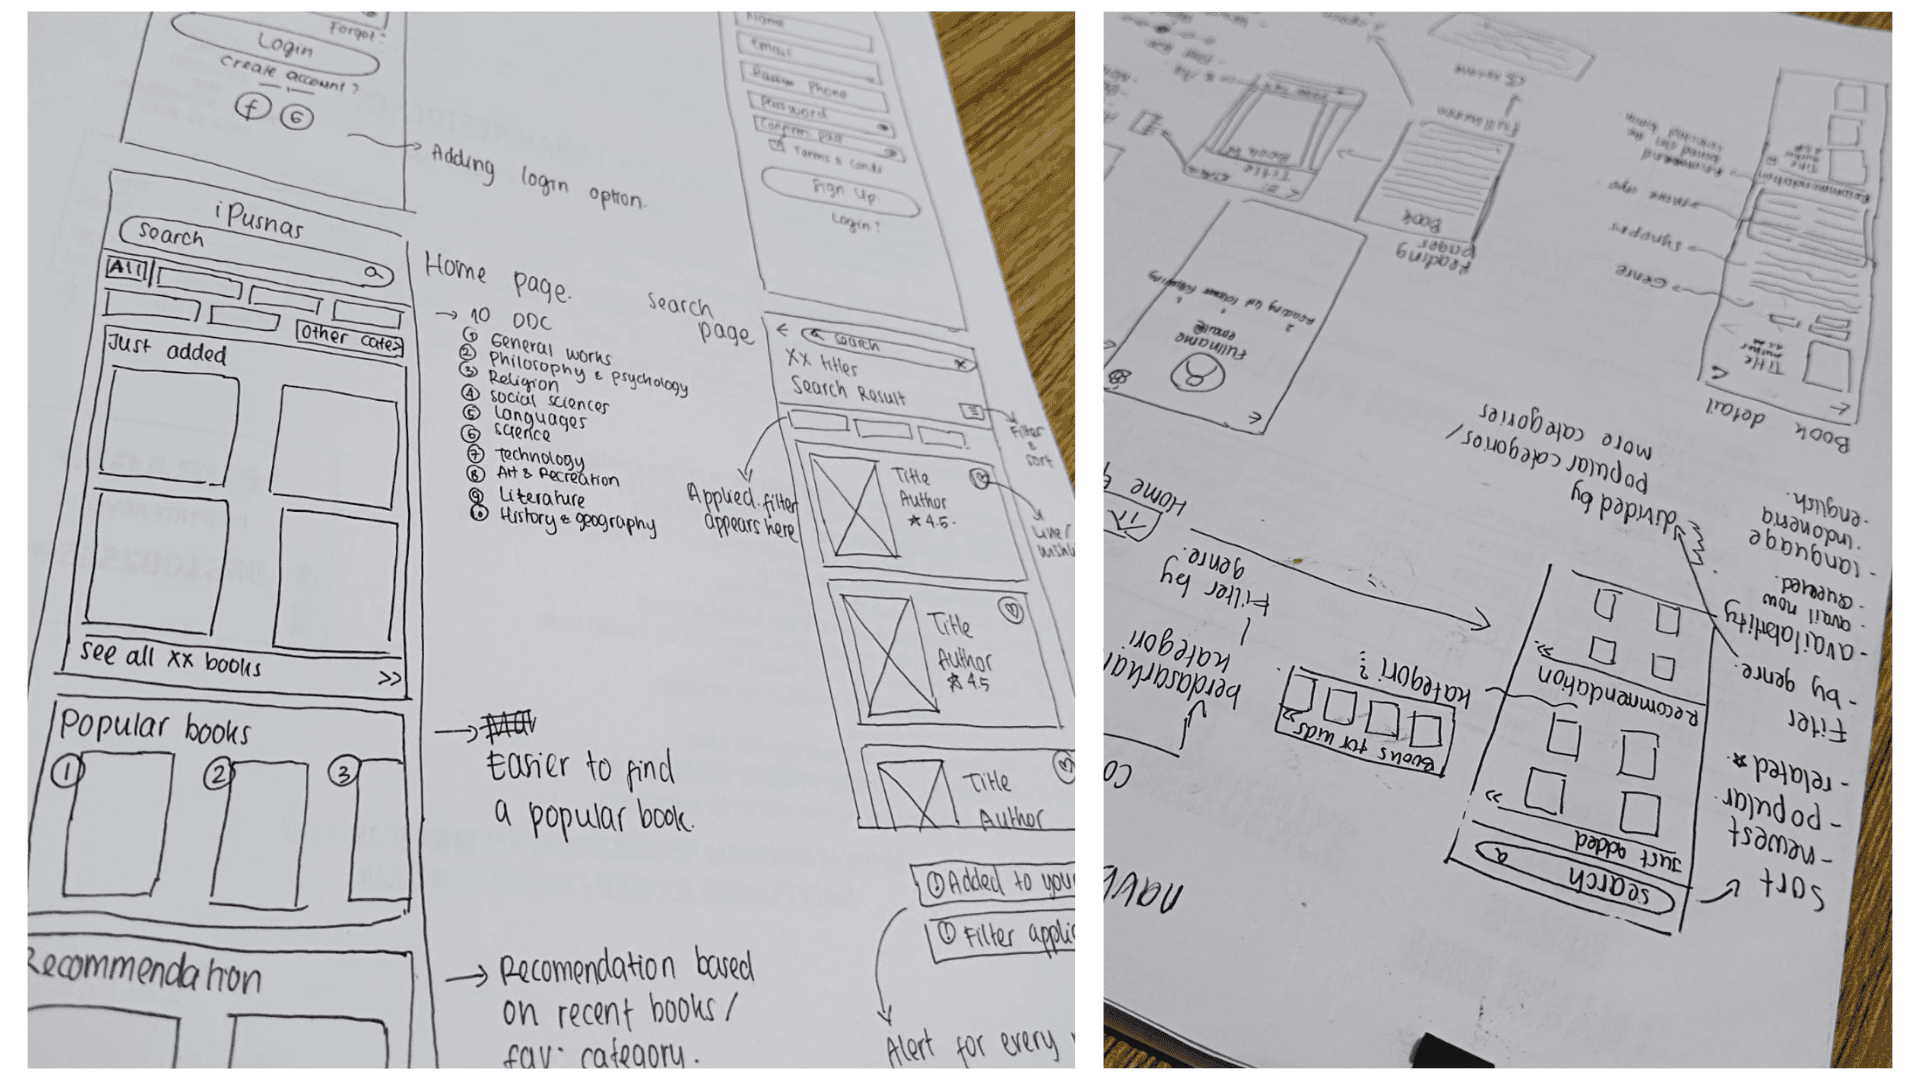 Forgot?
Login
Create account?
f G
Adding login option.
iPusnas
search
All
Other cate>
Just added
see all xx books >>
Popular books
1 2 3
Recommendation
Home page.
→ 10 DDC
① General works
② Philosophy & psychology
③ Religion
④ social sciences
⑤ Languages
⑥ Science
⑦ Technology
⑧ Art & Recreation
⑨ Literature
⑩ History & geography
Easier to find
a popular book.
Recomendation based
on recent books/
fav. category.
Name
Email
Phone
Password
Confirm pass.
Terms & conds
Sign Up
Login?
search
page
Search
XX titles
Search Result
Filter
&
sort
Applied filter
appears here
Title
Author
★ 4.5
Title
Author
★ 4.5
Title
Author
Added to your
Filter applic
Alert for every
Book
detail
Title
Author
Genre
Synopsis
more info
Recommendation
Reading
pages
Book
Fullscreen
Title
Book
Fullname
email@
divided by
popular categories/
more categories
Home
Filter by
genre.
berdasarkan
kategori
kategori?
Books for kids >>
search
Just added
>>
Recommendation
>>
sort
- newest
- popular
- related ★
Filter
- by genre.
- availability
. avail now
. queued
- language
. indonesia
- english.